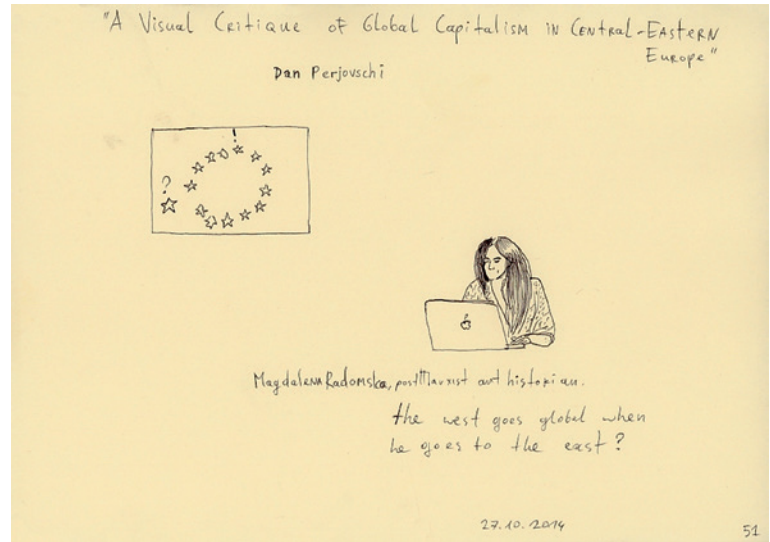 "A Visual Critique of Global Capitalism in Central-Eastern
Europe"
Dan Perjovschi
!
?
Magdalena Radomska, postMarxist art historian.
the west goes global when
he goes to the east?
27.10.2014
51